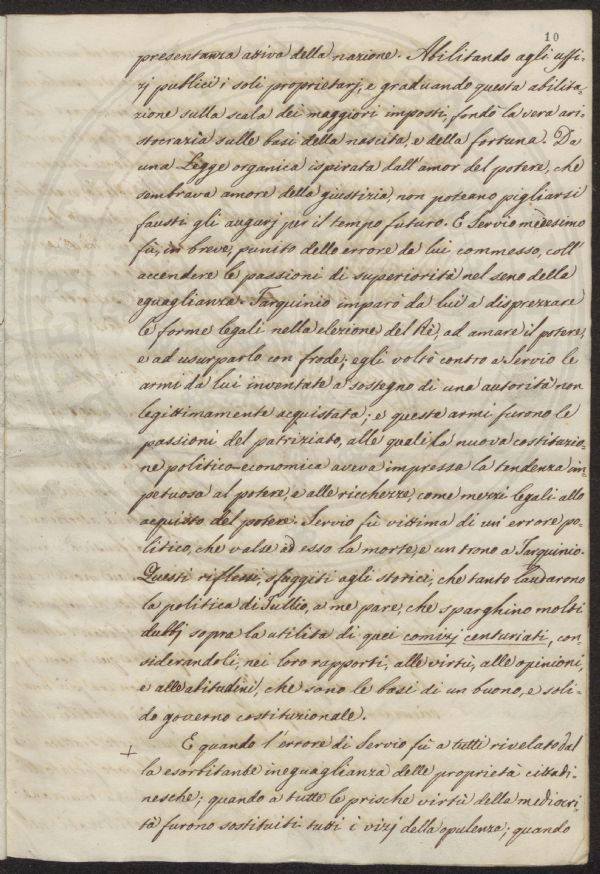 10
presentanza attiva della nazione. Abilitando agli uffi-
zj publici i soli proprietarj, e graduando questa abilita-
zione sulla scala dei maggiori imposti, fondò la vera ari-
stocrazia sulle basi della nascita, e della fortuna. Da
una Legge organica ispirata dall'amor del potere, che
sembrava amore della giustizia, non poteano pigliarsi
fausti gli augurj per il tempo futuro. E Servio medesimo
fù, in breve, punito dello errore da lui commesso, coll'
accendere le passioni di superiorità nel seno della
eguaglianza. Tarquinio imparò da lui a disprezzare
le forme legali nella elezione del Rè, ad amare il potere,
e ad usurparlo con frode; egli voltò contro a Servio le
armi da lui inventate a sostegno di una autorità non
legittimamente acquistata; e queste armi furono le
passioni del patriziato, alle quali la nuova costituzio-
ne politico-economica aveva impressa la tendenza im-
petuosa al potere, e alle ricchezze, come mezzi legali allo
acquisto del potere. Servio fù vittima di un errore po-
litico, che valse ad esso la morte, e un trono a Tarquinio.
Questi riflessi, sfuggiti agli storici, che tanto laudarono
la politica di Tullio, a me pare, che sparghino molti
dubbj sopra la utilità di quei comizj centuriati, con-
siderandoli, nei loro rapporti, alle virtù, alle opinioni,
e alle abitudini, che sono le basi di un buono, e soli-
do governo costituzionale.
+ E quando l'errore di Servio fù a tutti rivelato dal
la esorbitante ineguaglianza delle proprietà cittadi-
nesche; quando a tutte le prische virtù della mediocri-
tà furono sostituiti tutti i vizj della opulenza; quando